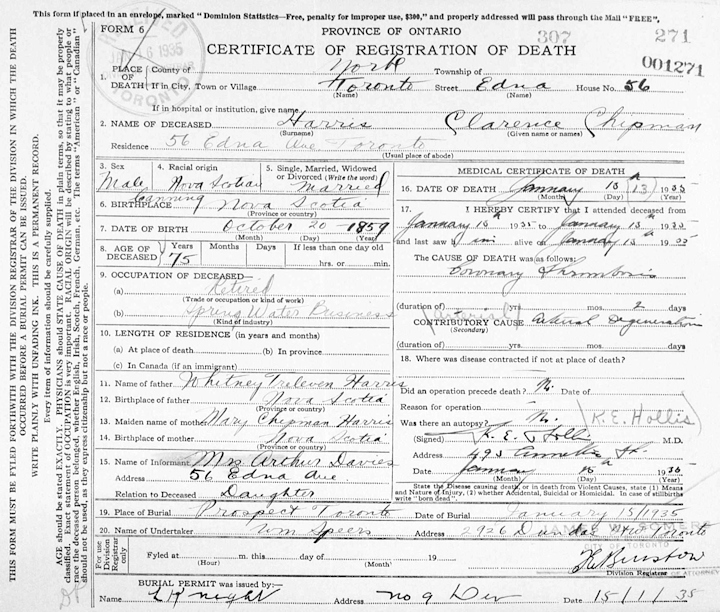 This form if placed in an envelope, marked "Dominion Statistics—Free, penalty for improper use, $300," and properly addressed will pass through the Mail "FREE".
FORM 6
PROVINCE OF ONTARIO
307
271
CERTIFICATE OF REGISTRATION OF DEATH
001271
6 1935
TORONTO
1. PLACE OF DEATH
County of York Township of
If in City, Town or Village Toronto Street Edna House No. 56
(Name) (Name)
If in hospital or institution, give name
2. NAME OF DECEASED Harris Clarence Chipman
(Surname) (Given name or names)
Residence 56 Edna Ave Toronto
(Usual place of abode)
3. Sex Male
4. Racial origin Nova Scotian
5. Single, Married, Widowed or Divorced (Write the word) Married
6. BIRTHPLACE Canning Nova Scotia
(Province or country)
7. DATE OF BIRTH October 20 1859
(Month) (Day) (Year)
8. AGE OF DECEASED Years 75 Months Days If less than one day old
hrs. or min.
9. OCCUPATION OF DECEASED—
(a) Retired
(Trade or occupation or kind of work)
(b) Spring Water Business
(Kind of industry)
10. LENGTH OF RESIDENCE (in years and months)
(a) At place of death (b) In province
(c) In Canada (if an immigrant)
11. Name of father Whitney Trileven Harris
12. Birthplace of father Nova Scotia
(Province or country)
13. Maiden name of mother Mary Chipman Harris
14. Birthplace of mother Nova Scotia
(Province or country)
15. Name of Informant Mrs Arthur Davies
Address 56 Edna Ave
Relation to Deceased Daughter
MEDICAL CERTIFICATE OF DEATH
16. DATE OF DEATH January 13 (13) 1935
(Month) (Day) (Year)
17. I HEREBY CERTIFY that I attended deceased from
January 1935 to January 13 1935
and last saw him alive on January 13 1935
The CAUSE OF DEATH was as follows:
Coronary Thrombosis
(duration of) yrs. mos. 2 days
(Arterial)
CONTRIBUTORY CAUSE Arterial Degeneration
(Secondary)
(duration of) yrs. mos. days
18. Where was disease contracted if not at place of death?
Did an operation precede death? No. Date of
Reason for operation
Was there an autopsy? No. (K. E. Hollis)
(Signed) K. E. Hollis M.D.
Address 493 Annette St.
Date January 1935
(Month) (Day) (Year)
State the Disease causing death, or in death from Violent Causes, state (1) Means and Nature of Injury, (2) whether Accidental, Suicidal or Homicidal. In case of stillbirth write "born dead".
19. Place of Burial Prospect Toronto Date of Burial January 15/1935
20. Name of Undertaker Wm Speers Address 2926 Dundas St W Toronto
For use of Division Registrar only
Fyled at m. this day of 19
(Hour) (Month)
Division Registrar
BURIAL PERMIT was issued by:—
Name Knight Address No 9 Div Date 15/1/35
THIS FORM MUST BE FYLED FORTHWITH WITH THE DIVISION REGISTRAR OF THE DIVISION IN WHICH THE DEATH
OCCURRED BEFORE A BURIAL PERMIT CAN BE ISSUED.
WRITE PLAINLY WITH UNFADING INK. THIS IS A PERMANENT RECORD.
Every item of information should be carefully supplied.
AGE should be stated EXACTLY. PHYSICIANS should STATE CAUSE OF DEATH in plain terms, so that it may be properly
classified. Exact statement of OCCUPATION is very important. RACIAL ORIGIN will be described by stating to what people or
race the deceased person belonged, whether English, Irish, Scotch, French, German, etc. The terms "American" or "Canadian"
should not be used, as they express citizenship but not a race or people.